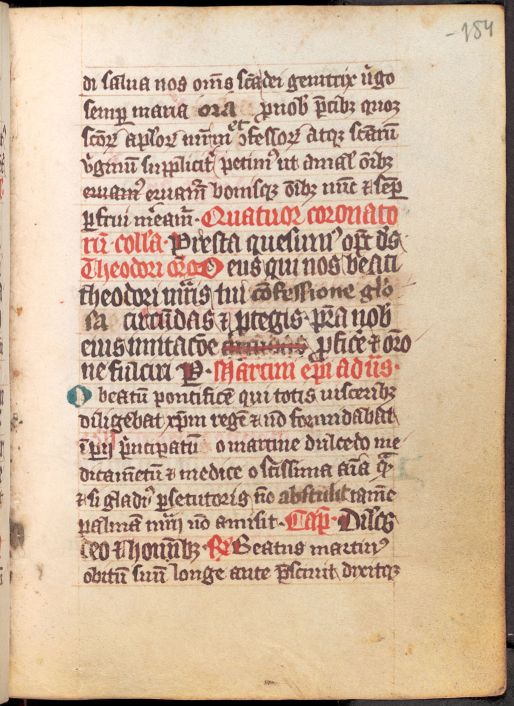 -184
di salua nos oms scādei genitrix v̄go
semp maria ora p̄nob p̄cibꝫ quoꝫ
scōꝝ aplōꝝ mr̄m et ↄfessoꝝ atqꝫ scārū
v̄ginū supplicit̓ petim᷒ ut amal̓ ōibꝫ
eruam᷒ eruam̄ bonisqꝫ ōibꝫ nūc ⁊ semp̄
p̄frui m̓eam̄. Quatuor coronato
rū. coll̓a. Presta quesum᷒ op̄c d̄s
Theodori or̄o Deus qui nos beati
theodori m̓ris tui confessione glo
sa circūdas ⁊ ꝓtegis p̄ra nob
eius imitac̄oe ꝓfic̄e ⁊ or̄o
ne fulciri P. Martini ep̄i ad v̄s.
O beatum pontificē qui totis uisceribꝫ
diligebat xp̄m regē ⁊ nō formidabat
īperij p̓ncipatum o martine dulcedo me
dicam̄etū ⁊ medice o sc̄issima aīa q̄
⁊ si gladi᷒ p̄secutoris nō abstulit tam̄e
palmā mr̓ij nō amisit. Cap̄. Dil̄cs
deo ⁊ hom̄ibꝫ R̄ Beatus martin᷒
obitū suū longe ante p̄sciuit dixitqꝫ